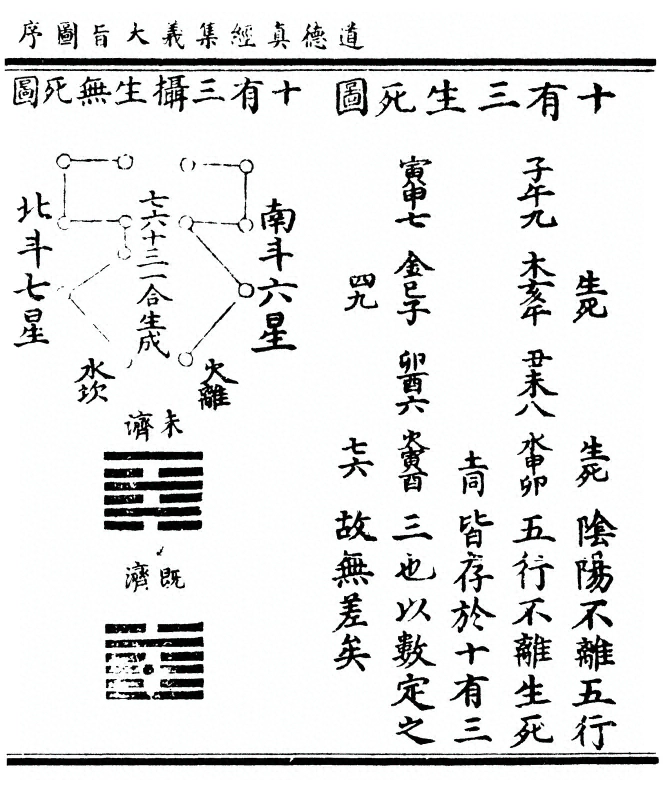 道德真經集義大旨圖序
十有三生死圖
生死
生死
陰陽不離五行
子午九
木亥午
丑未八
水申卯
五行不離生死
土同
皆存於十有三
寅申七
金巳子
卯酉六
火寅酉
三也以數定之
四九
七六
故無差矣
十有三攝生無死圖
南斗六星
七六十三一合生成
北斗七星
火離
水坎
未濟
既濟